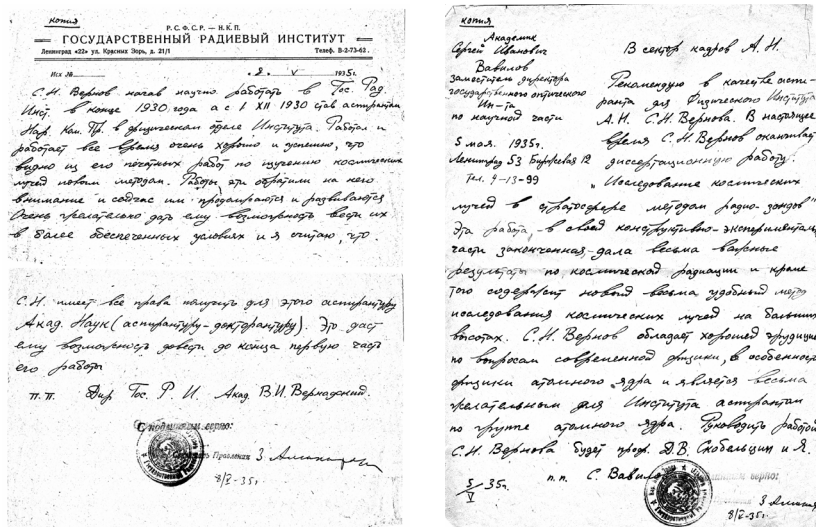 копия
Р.С.Ф.С.Р. — Н.К.П.
ГОСУДАРСТВЕННЫЙ РАДИЕВЫЙ ИНСТИТУТ
Ленинград «22» ул. Красных Зорь, д. 21/1 Телеф. В-2-73-62.
Исх № 8. V 1935г.
С.Н. Вернов начав научно работать в Гос. Рад.
Инст. в конце 1930 года а с 1 XII 1930 став аспирантом
Нар. Ком. Пр. в физическом отделе Института. Работал и
работает все время очень хорошо и успешно, что
видно из его печатных работ по изучению космических
лучей новым методам. Работы эти обратили на него
внимание и сейчас им продолжаются и развиваются
Очень желательно дать ему возможность вести их
в более обеспеченных условиях и я считаю, что
С.Н. имеет все права получить для этого аспирантуру
Акад. Наук (аспирантуру-докторантуру). Это даст
ему возможность довести до конца первую часть
его работы
п.п. Дир. Гос. Р. И. Акад. В.И. Вернадский.
С подлинным верно:
Правления
8/V-35г.
копия
Академик
Сергей Иванович
Вавилов
заместитель директора
государственного оптического
Ин-та
по научной части
5 мая. 1935г.
Ленинград 53 Биржевая 12
Тел. 4-13-99
В сектор кадров А.Н.
Рекомендую в качестве аспи-
ранта для Физического Института
А.Н. С.Н. Вернова. В настоящее
время С.Н. Вернов оканчивает
диссертационную работу.
„Исследование космических
лучей в стратосфере методом радио-зондов"
Эта работа, в своей конструктивно-экспериментальн
части законченная, дала весьма важные
результаты по космической радиации и кроме
того содержит новый весьма удобный метод
исследования космических лучей на больших
высотах. С.Н. Вернов обладает хорошей эрудицией
по вопросам современной физики, в особенности
физики атомного ядра и является весьма
желательным для Института аспирантом
по группе атомного ядра. Руководить работой
С.Н. Вернова будет проф. Д.В. Скобельцин и Я.
5/V 35г. п.п. С. Вавил
верно:
8/V-35г.